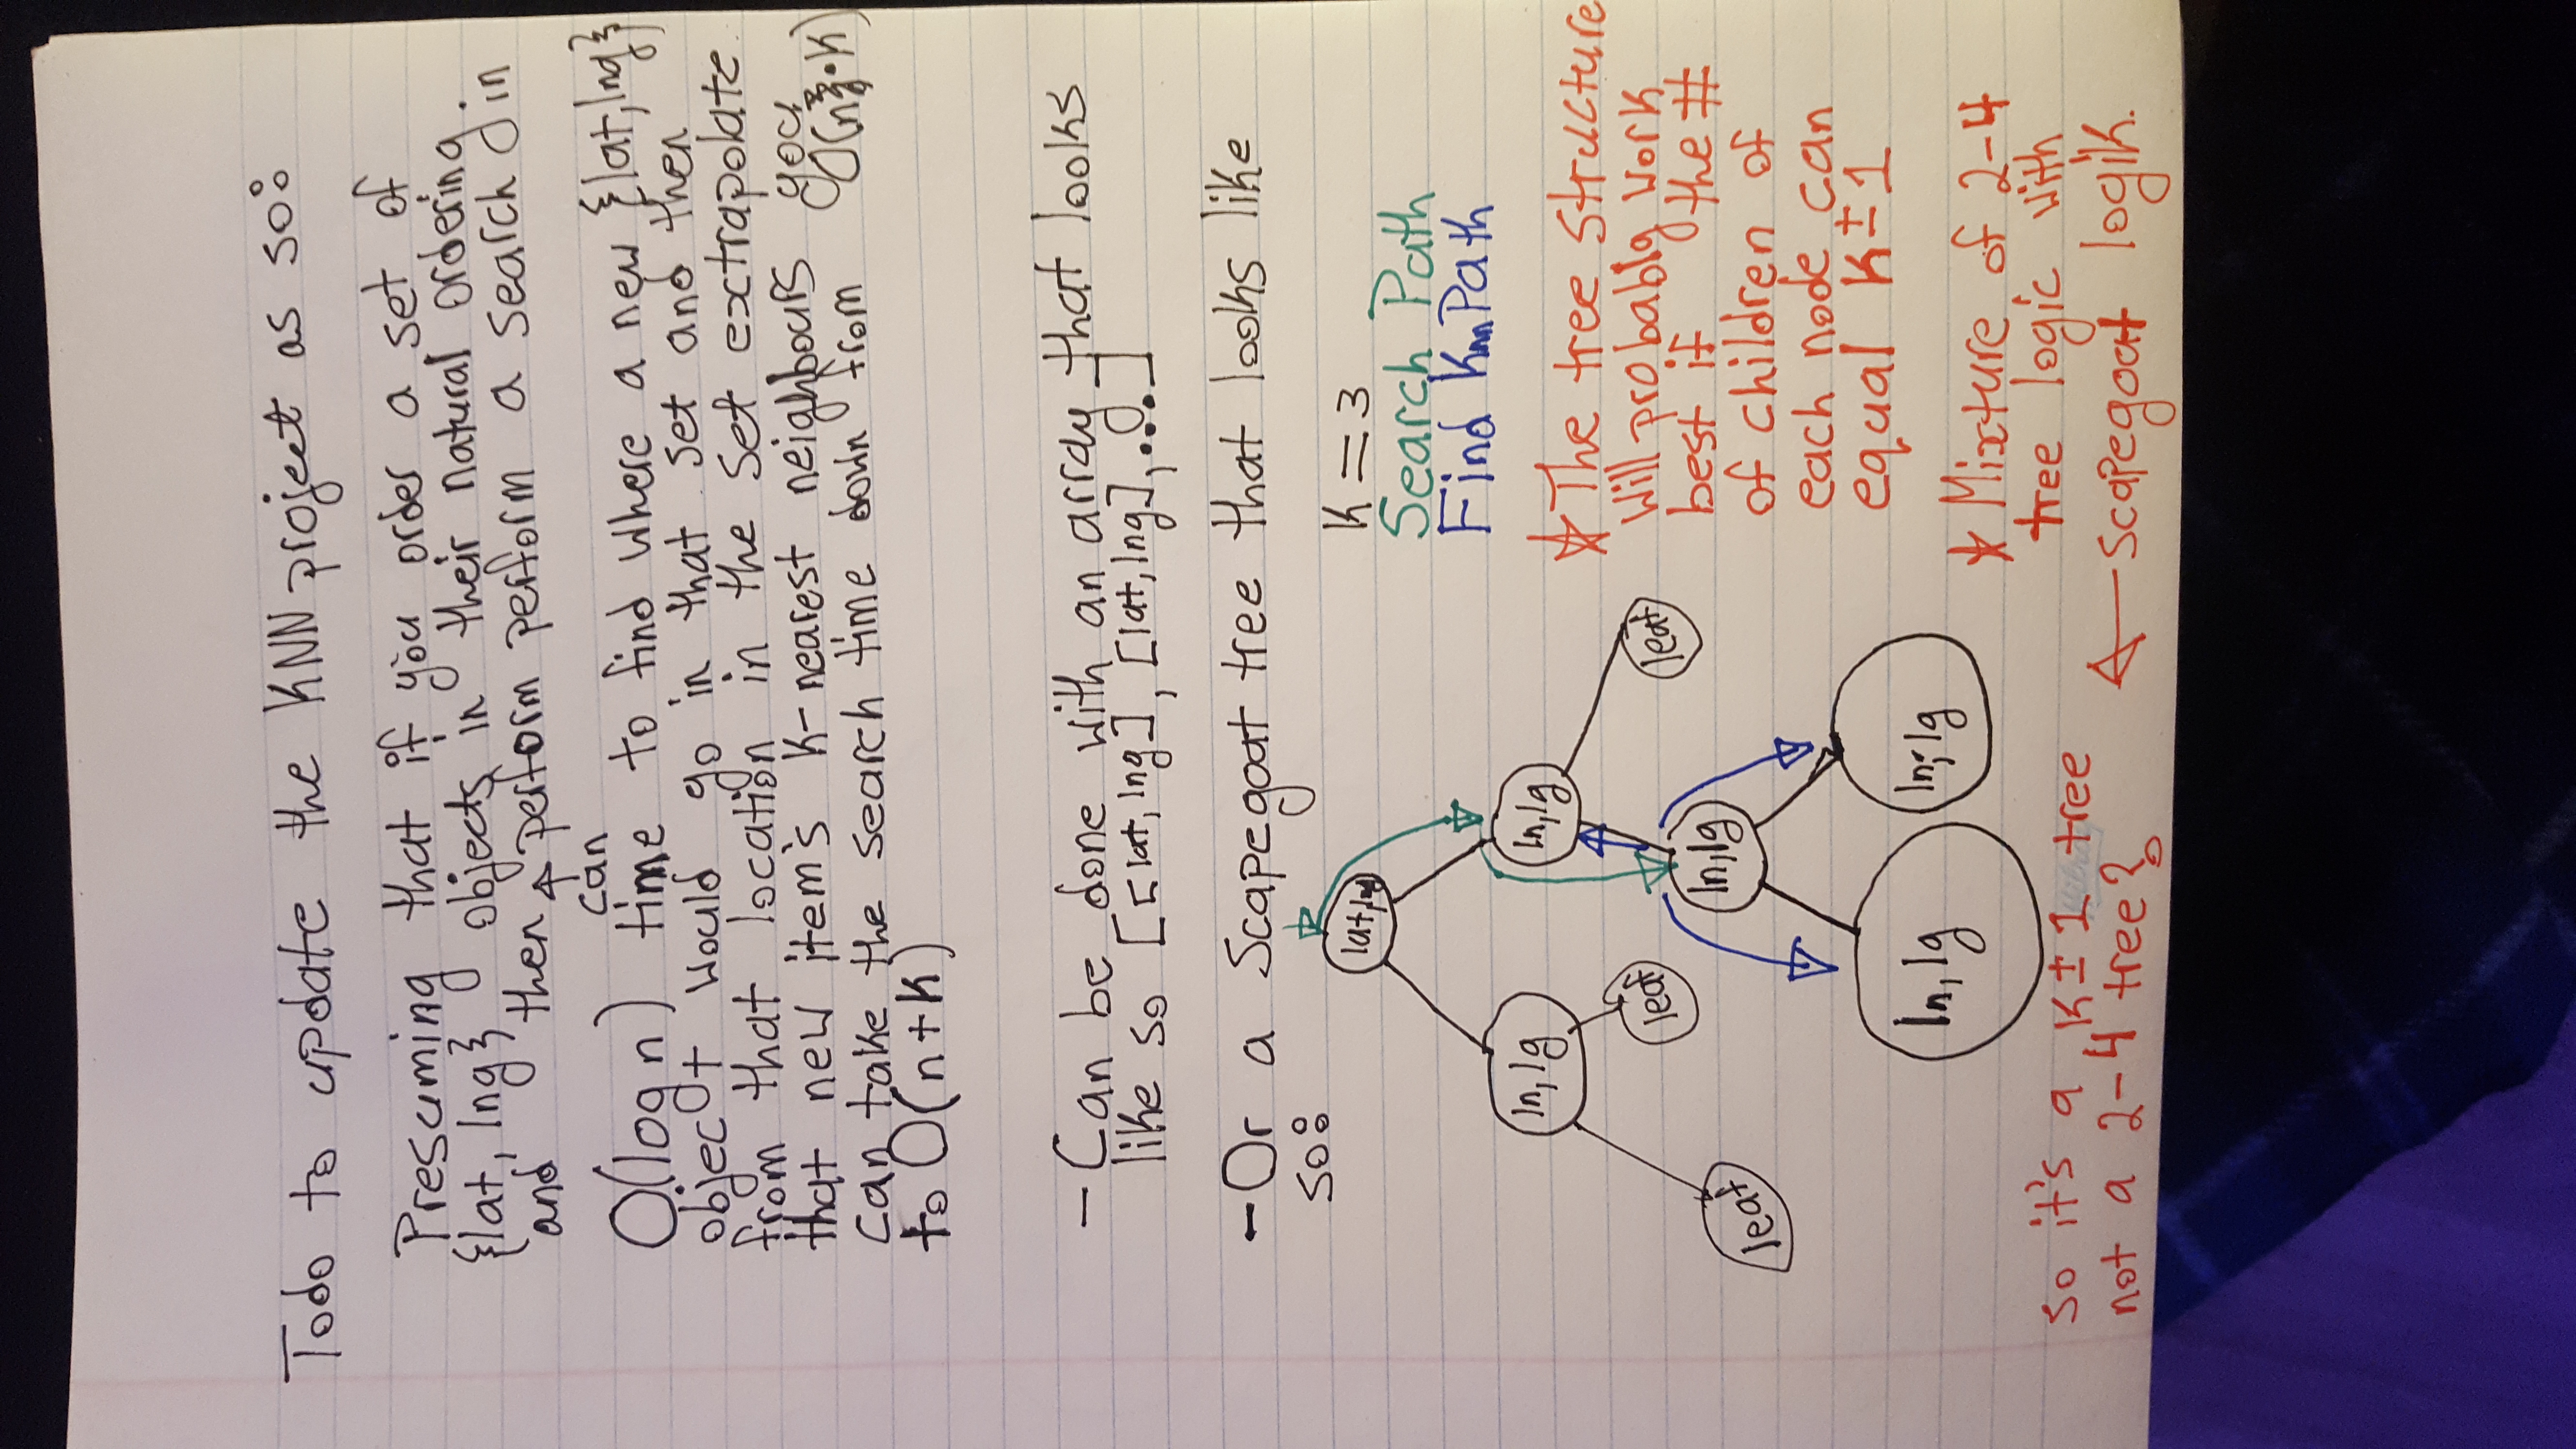 Todo to update the KNN project as so:
Presuming that if you order a set of
{lat, lng} objects in their natural ordering.
and then perform perform a search in
can
O(log n) time to find where a new {lat,lng}
object would go in that set and then
from that location in the set extrapolate
that new item's K-nearest neighbours you
can take the search time down from O(n•K)
to O(n+K)
- Can be done with an array that looks
like so [[lat, lng], [lat, lng],....]
- Or a Scapegoat tree that looks like
so:
lat,lng
ln, lg
ln, lg
leaf
leaf
leaf
ln, lg
ln, lg
ln, lg
K = 3
Search Path
Find Knn Path
☆ The tree structure
will probably work
best if the #
of children of
each node can
equal K±1
☆ Mixture of 2-4
tree logic with
← scapegoat logik.
so it's a K±1 tree
not a 2-4 tree?